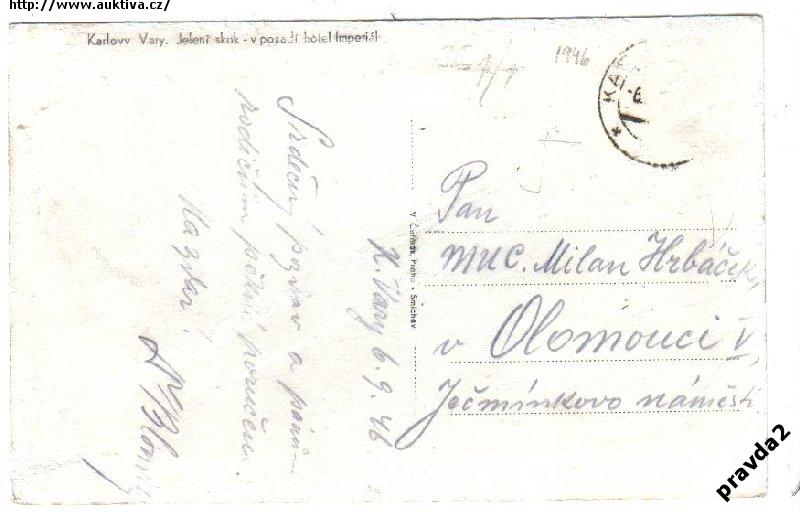 http://www.auktiva.cz/
Karlovy Vary. Jelení skok - v pozadí hotel Imperiál
1946
KAR
6
K. Vary 6.9.46
Srdečný pozdrav a
rodičům pěkné poručení.
Na zdar!
V. Čermák, Praha - Smíchov
Pan
MUC. Milan Hrbáček,
v Olomouci V,
Ječmínkovo náměstí
pravda2